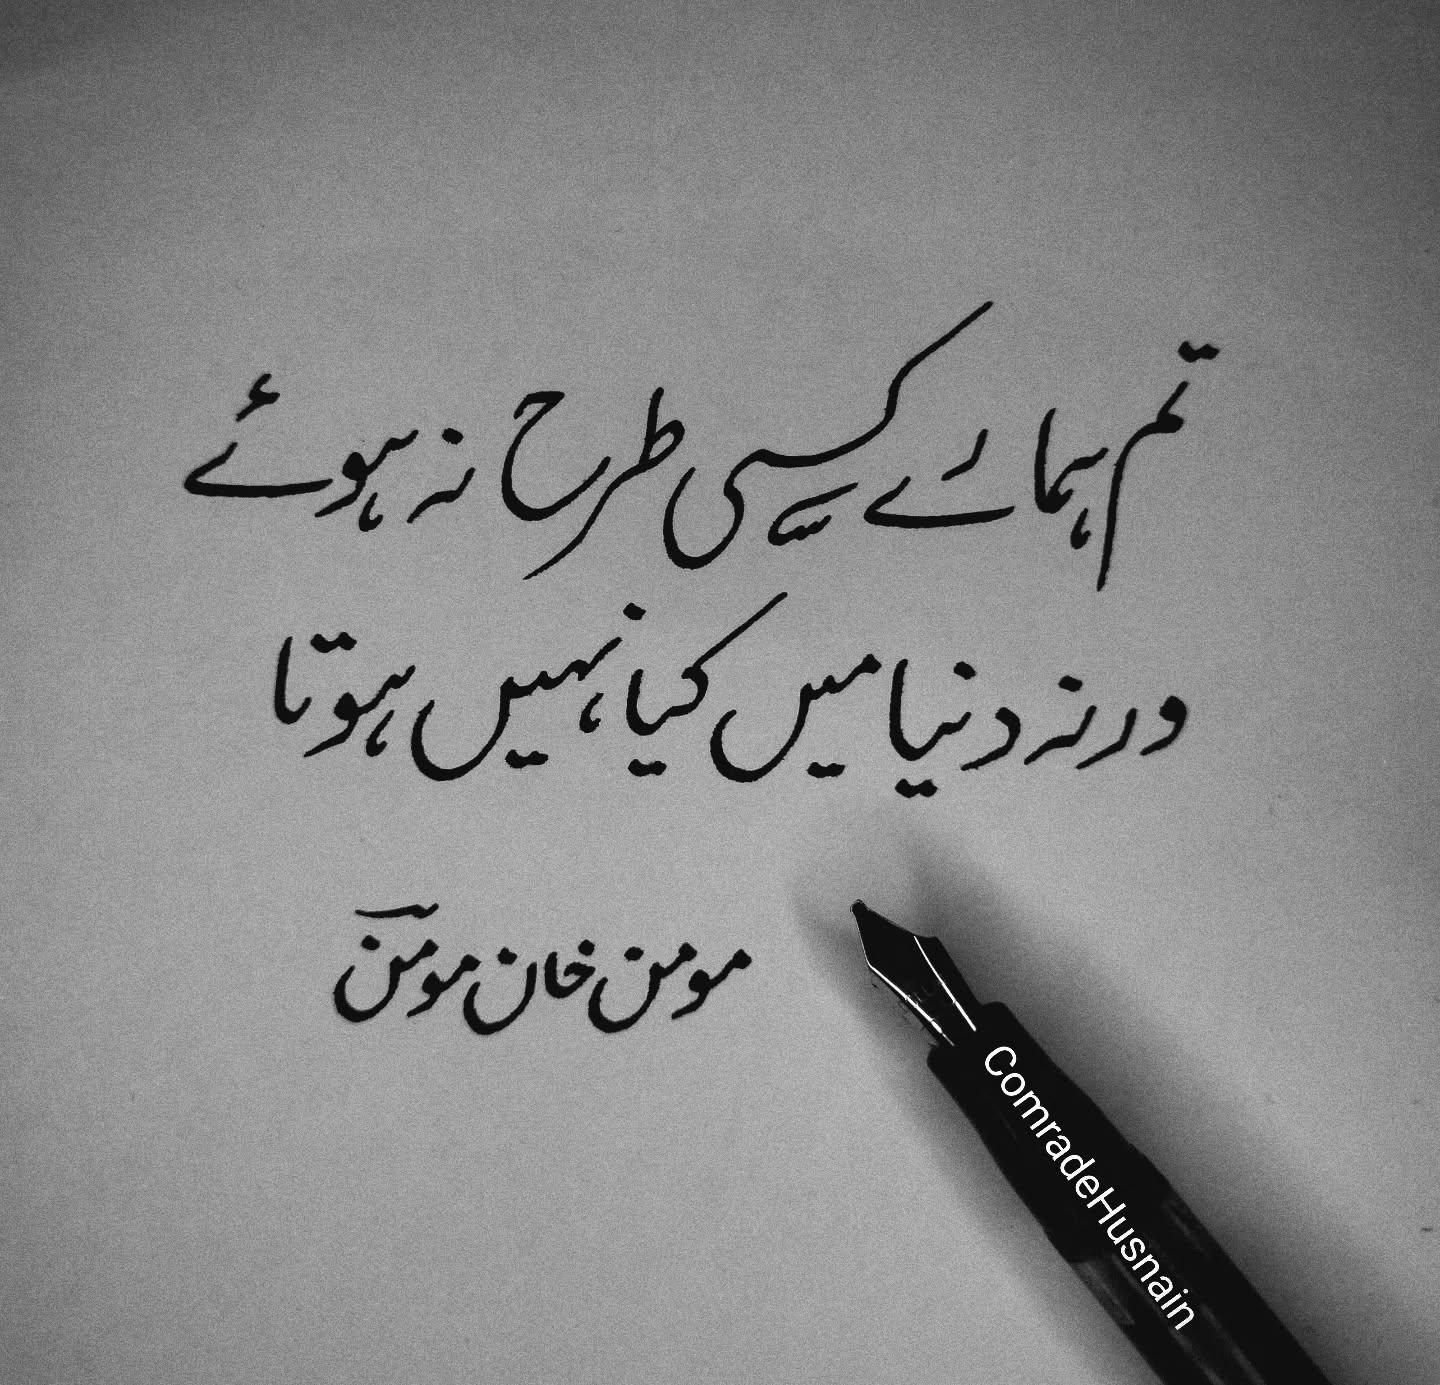 تم ہمارے کسی طرح نہ ہوئے
ورنہ دنیا میں کیا نہیں ہوتا
مومن خان مومنؔ
ComradeHusnain